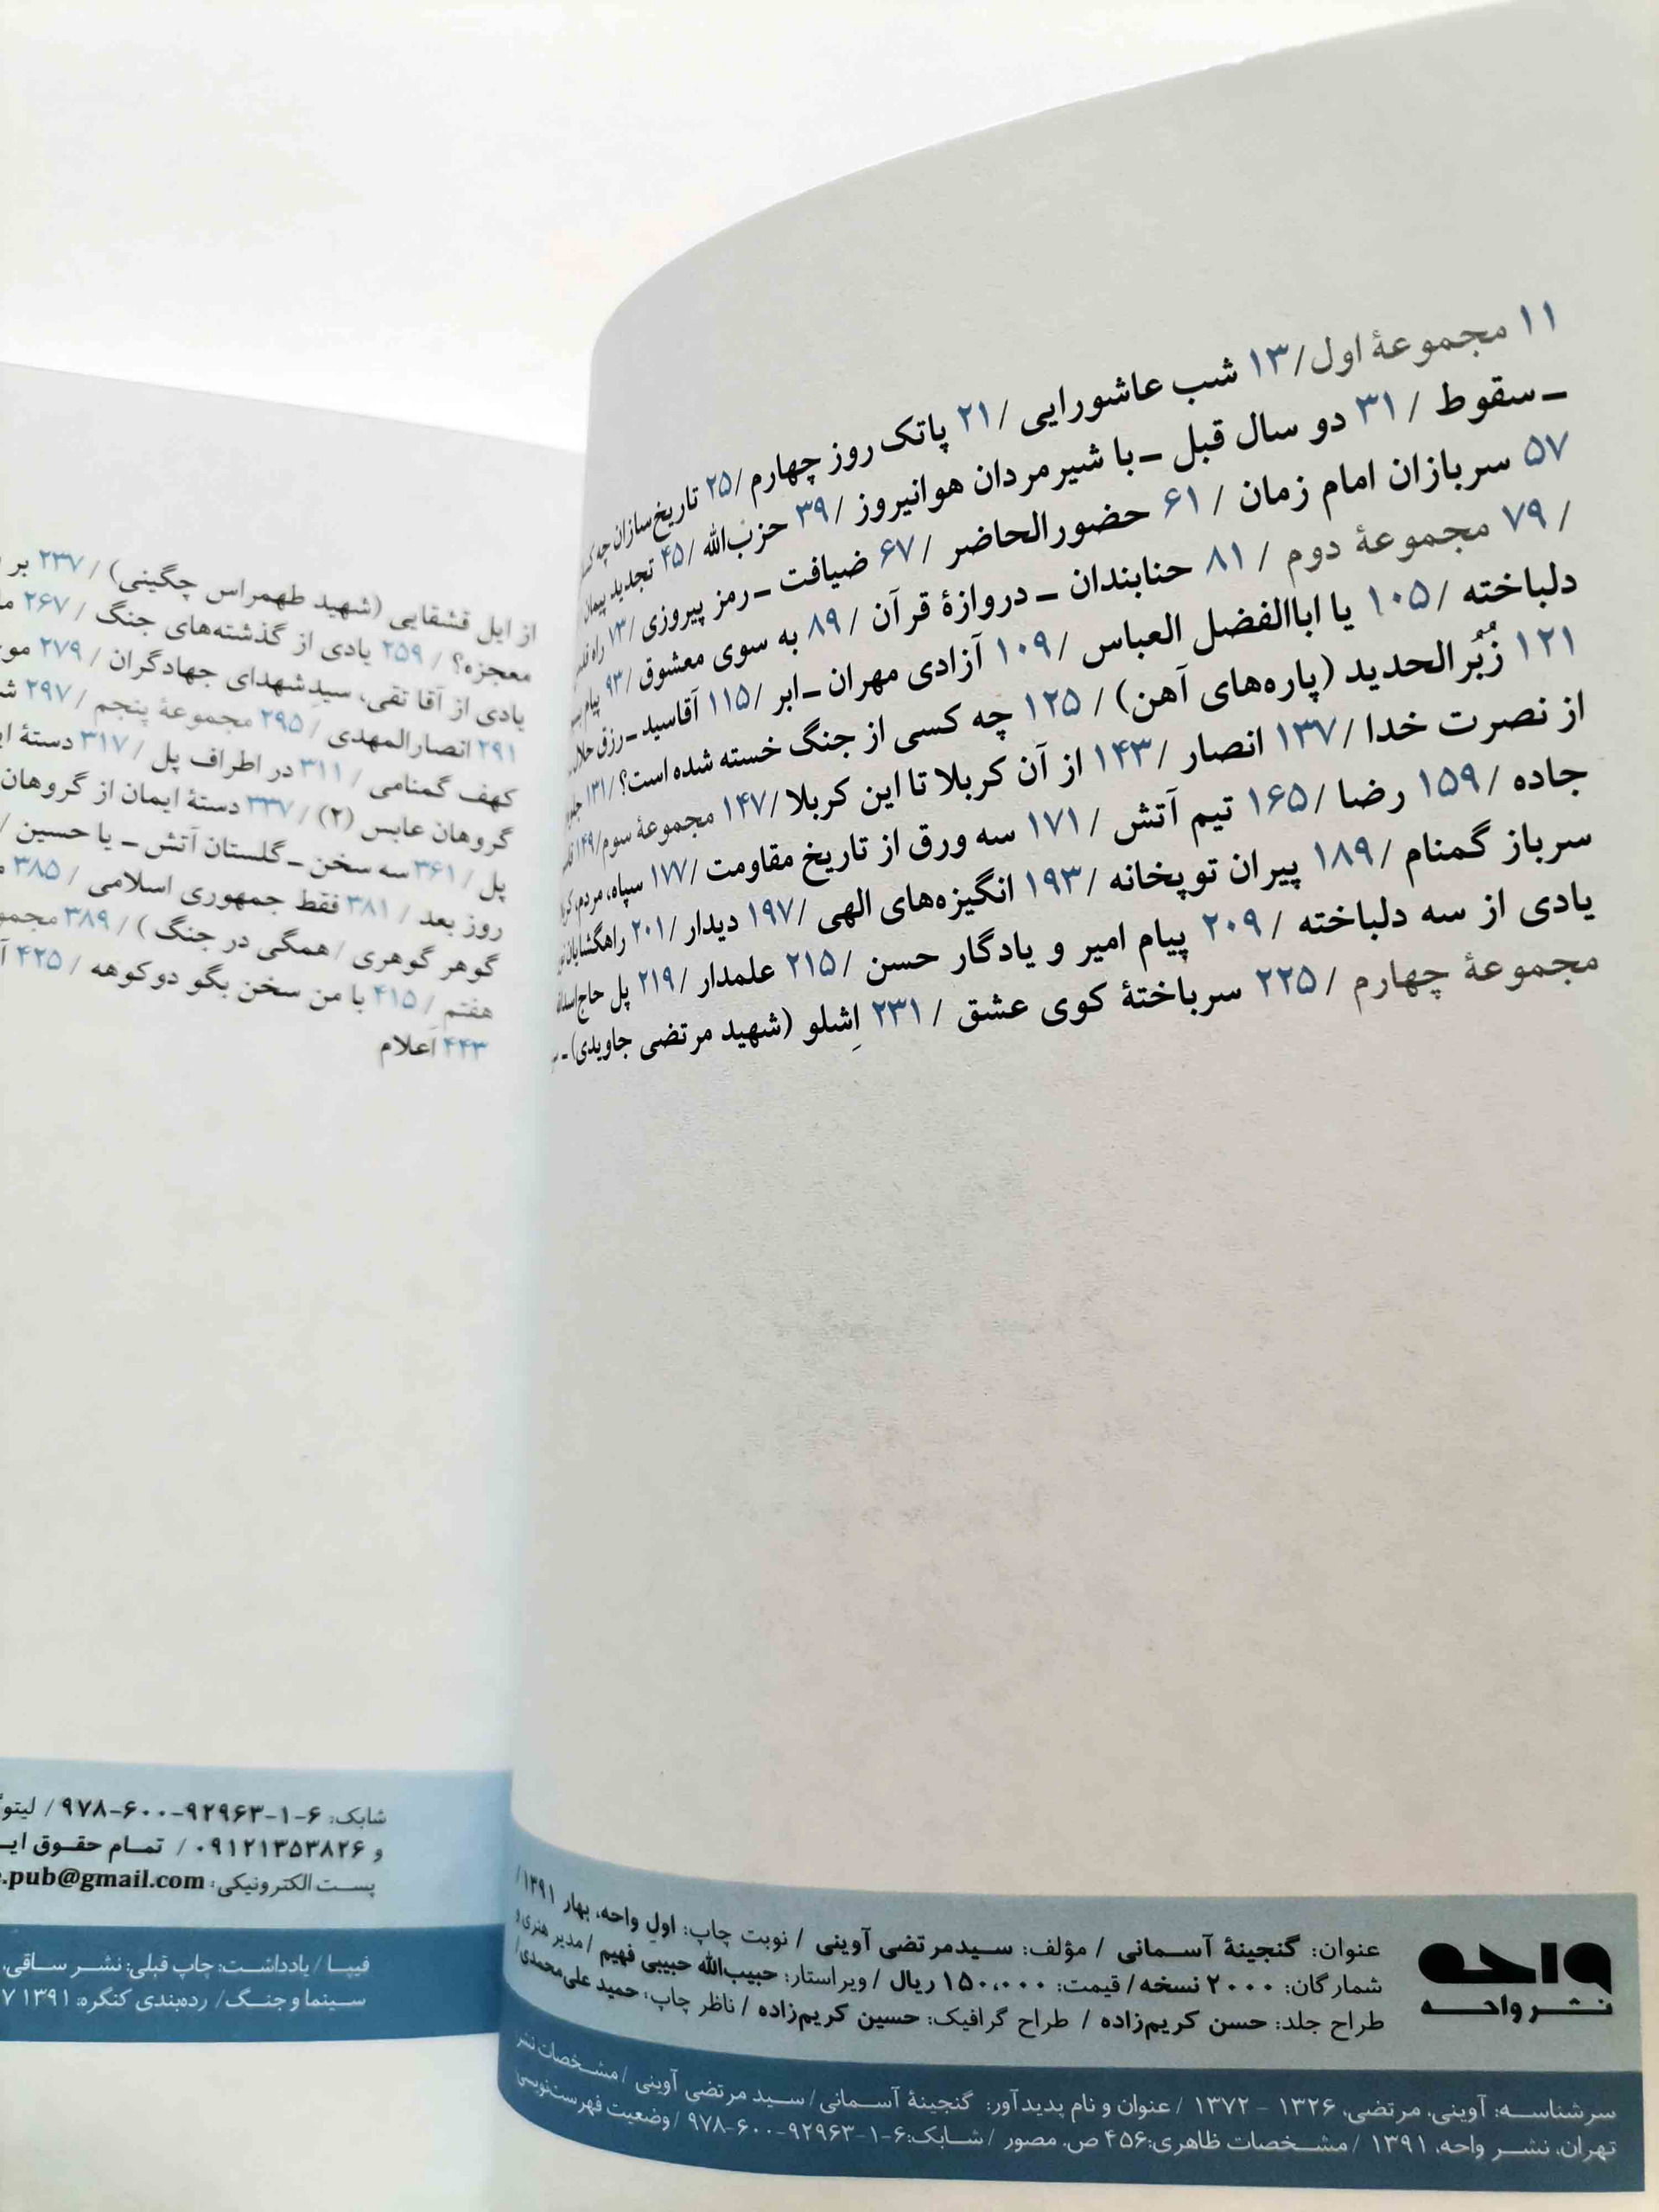 ۱۱ مجموعهٔ اول/ ۱۳ شب عاشورایی / ۲۱ پاتک روز چهارم / ۲۵ تاریخ‌سازان چه
ـ سقوط / ۳۱ دو سال قبل ـ با شیرمردان هوانیروز / ۳۹ حزب‌الله / ۴۵ تجدید پیمان
۵۷ سربازان امام زمان / ۶۱ حضورالحاضر / ۶۷ ضیافت ـ رمز پیروزی / ۷۳ راه
/ ۷۹ مجموعهٔ دوم / ۸۱ حنابندان ـ دروازهٔ قرآن / ۸۹ به سوی معشوق / ۹۳ پیام
دلباخته / ۱۰۵ یا اباالفضل العباس / ۱۰۹ آزادی مهران ـ ابر / ۱۱۵ آقاسید ـ رزق حلال
۱۲۱ زُبُرالحدید (پاره‌های آهن) / ۱۲۵ چه کسی از جنگ خسته شده است؟ / ۱۳۱
از نصرت خدا / ۱۳۷ انصار / ۱۴۳ از آن کربلا تا این کربلا / ۱۴۷ مجموعهٔ سوم / ۱۴۹
جاده / ۱۵۹ رضا / ۱۶۵ تیم آتش / ۱۷۱ سه ورق از تاریخ مقاومت / ۱۷۷ سپاه، مردم،
سرباز گمنام / ۱۸۹ پیران توپخانه / ۱۹۳ انگیزه‌های الهی / ۱۹۷ دیدار / ۲۰۱ راهگشایان
یادی از سه دلباخته / ۲۰۹ پیام امیر و یادگار حسن / ۲۱۵ علمدار / ۲۱۹ پل حاج
مجموعهٔ چهارم / ۲۲۵ سرباختهٔ کوی عشق / ۲۳۱ اِشلو (شهید مرتضی جاویدی) ـ
واحه
نشر واحه
عنوان: گنجینهٔ آسمانی / مؤلف: سیدمرتضی آوینی / نوبت چاپ: اولِ واحه، بهار ۱۳۹۱ /
شمارگان: ۲۰۰۰ نسخه / قیمت: ۱۵۰،۰۰۰ ریال / ویراستار: حبیب‌الله حبیبی فهیم / مدیر هنری و
طراح جلد: حسن کریم‌زاده / طراح گرافیک: حسین کریم‌زاده / ناظر چاپ: حمید علی‌محمدی/
سرشناسه: آوینی، مرتضی، ۱۳۲۶ - ۱۳۷۲ / عنوان و نام پدیدآور: گنجینهٔ آسمانی/ سید مرتضی آوینی / مشخصات نشر
تهران، نشر واحه، ۱۳۹۱ / مشخصات ظاهری: ۴۵۶ ص. مصور / شابک: ۶-۱-۹۲۹۶۳-۶۰۰-۹۷۸ / وضعیت فهرست‌نویسی:
از ایل قشقایی (شهید طهمراس چگینی) / ۲۳۷ بر
معجزه؟ / ۲۵۹ یادی از گذشته‌های جنگ / ۲۶۷
یادی از آقا تقی، سیدِشهدای جهادگران / ۲۷۹
۲۹۱ انصارالمهدی / ۲۹۵ مجموعهٔ پنجم / ۲۹۷
کهف گمنامی / ۳۱۱ در اطراف پل / ۳۱۷ دستهٔ
گروهان عابس (۲) / ۳۳۷ دستهٔ ایمان از گروهان
پل / ۳۶۱ سه سخن ـ گلستان آتش ـ یا حسین /
روز بعد / ۳۸۱ فقط جمهوری اسلامی / ۳۸۵
گوهر گوهری / همگی در جنگ ) / ۳۸۹
هفتم / ۴۱۵ با من سخن بگو دوکوهه / ۴۲۵
۴۴۳ اَعلام
شابک: ۶-۱-۹۲۹۶۳-۶۰۰-۹۷۸ /
و ۰۹۱۲۱۳۵۳۸۲۶ / تمام حقوق
پست الکترونیکی: .pub@gmail.com
فیپا / یادداشت: چاپ قبلی: نشر ساقی،
سینما و جنگ/ رده‌بندی کنگره: ۱۳۹۱ ۷